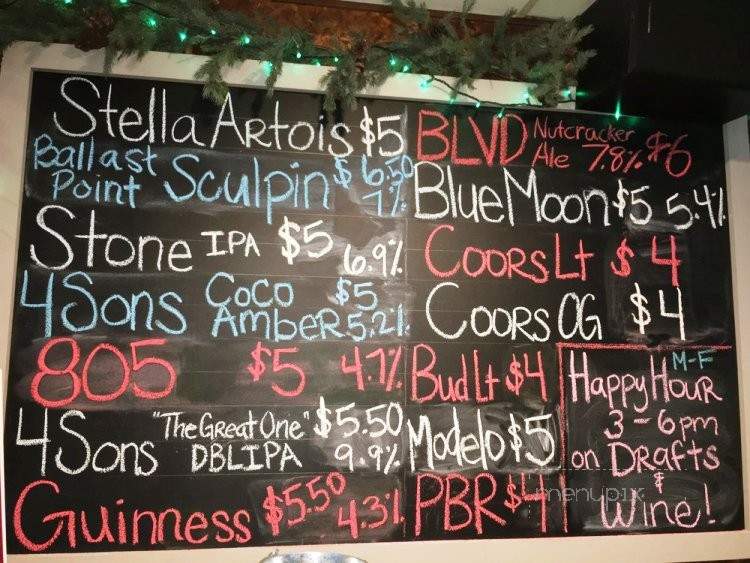 Stella Artois $5
Ballast Point Sculpin $6.50 7%
Stone IPA $5 6.9%
4 Sons Coco Amber $5 5.2%
805 $5 4.7%
4 Sons "The Great One" DBLIPA $5.50 9.9%
Guinness $5.50 4.3%
BLVD Nutcracker Ale 7.8% $6
Blue Moon $5 5.4%
Coors Lt $4
Coors OG $4
Bud Lt $4
Modelo $5
PBR $4
M-F
Happy Hour
3-6pm
on Drafts
&
Wine!
menupix